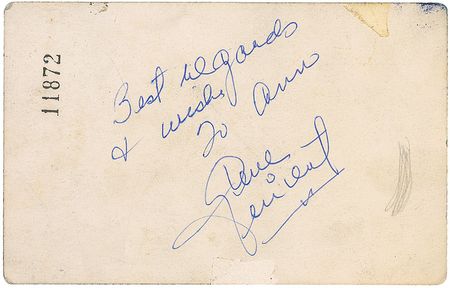 Best regards
& wishes
To Ann
Gene
Vincent
11872